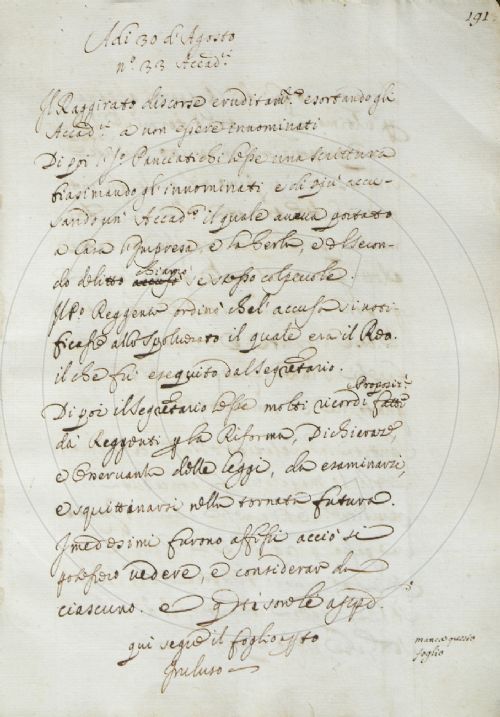 191
Adi 30 d'Agosto
n.º 33 Accad.ci
Il Raggirato discorse eruditam.te esortando gli
Accad.ci a non essere innominati
Di poi il Panciatichi lesse una scrittura
biasimando gl'innominati e di più accu-
sando un' Accad.co il quale aveva portatto
a Casa l'Impresa, e la berla, e del secon-
do delitto accusò chiamò se stesso colpevole.
Il P.º Reggente ordinò che l'accusa si noti-
ficasse allo Spolverato il quale era il Reo.
il che fù eseguito dal Segretario.
Di poi il Segretario lesse molti ricordi fatti Proposti
da Reggenti p la Riforma, Dichieraze,
e Osservanza delle leggi, da esaminarsi,
e squittinarsi nella tornata futura.
I medesimi furono affissi acciò si
potessero vedere, e considerar da
ciascuno. e
qui segue il foglio
Incluso
manca questo
foglio